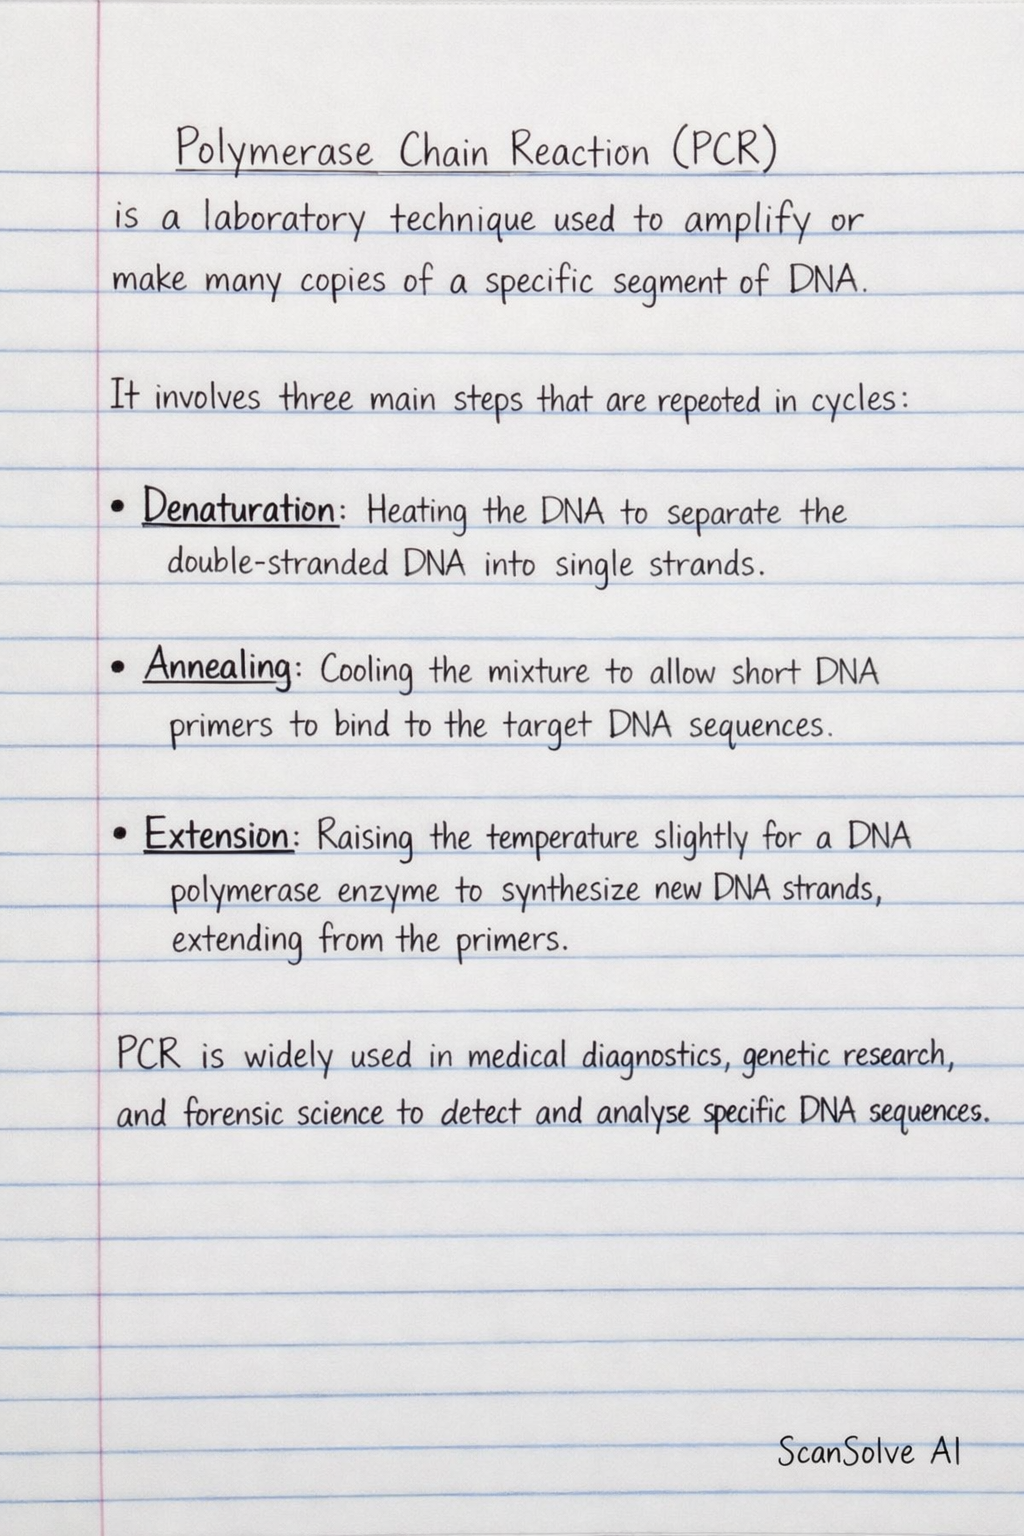 Polymerase Chain Reaction (PCR)
is a laboratory technique used to amplify or
make many copies of a specific segment of DNA.
It involves three main steps that are repeoted in cycles:
• Denaturation: Heating the DNA to separate the
double-stranded DNA into single strands.
• Annealing: Cooling the mixture to allow short DNA
primers to bind to the target DNA sequences.
• Extension: Raising the temperature slightly for a DNA
polymerase enzyme to synthesize new DNA strands,
extending from the primers.
PCR is widely used in medical diagnostics, genetic research,
and forensic science to detect and analyse specific DNA sequences.
ScanSolve AI